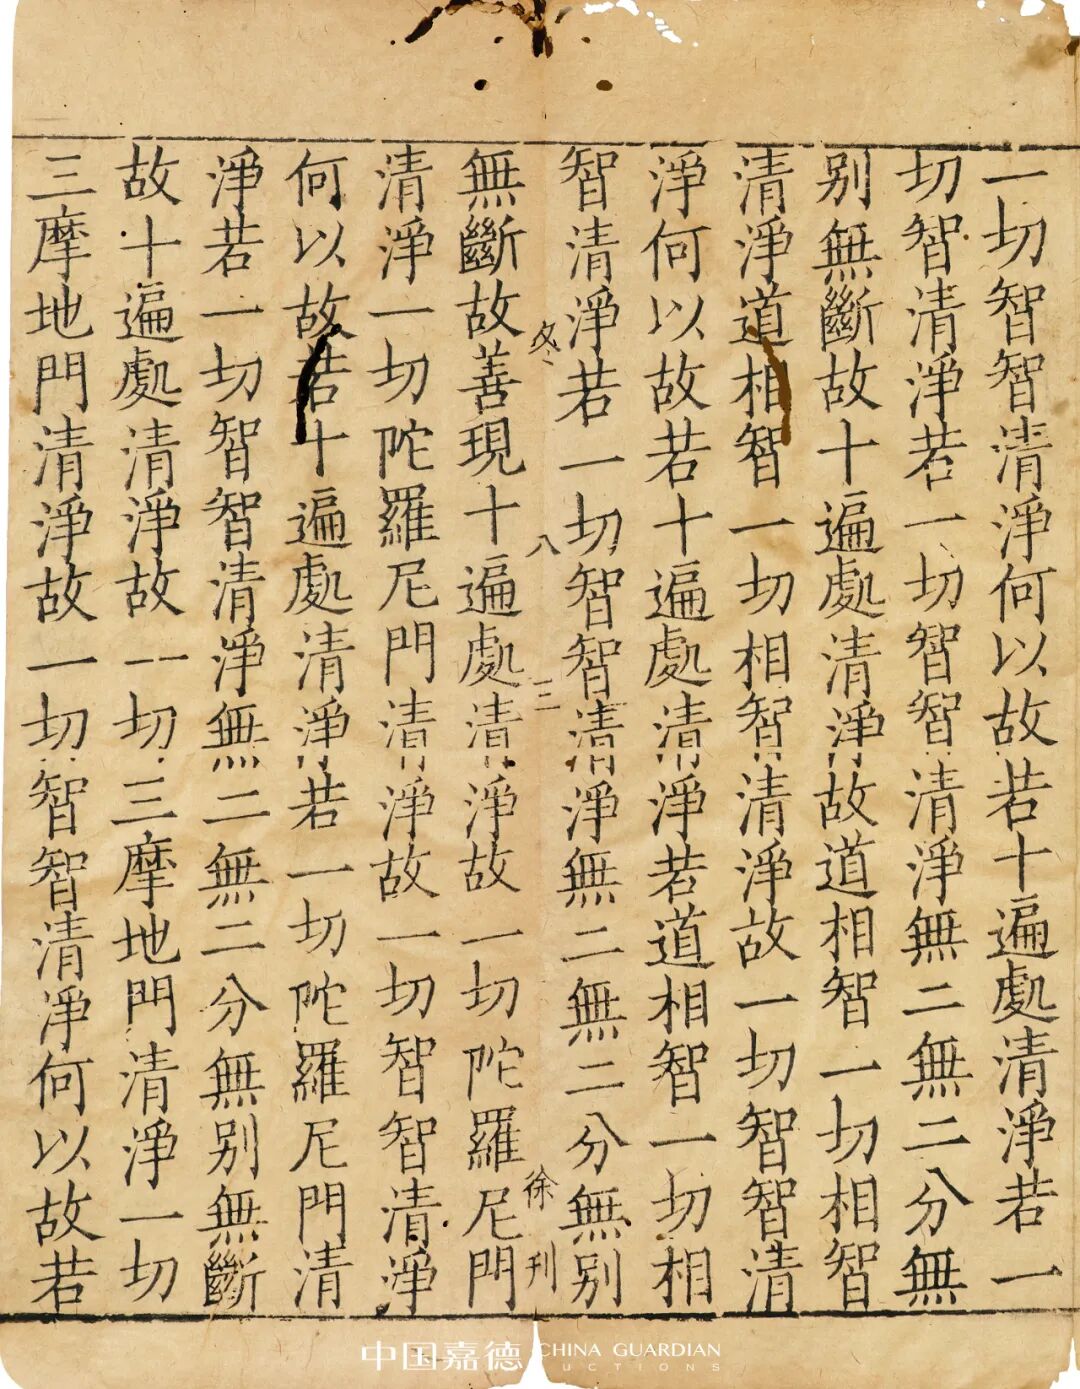 一切智智清淨何以故若十遍處清淨若一
切智清淨若一切智智清淨無二無二分無
别無斷故十遍處清淨故道相智一切相智
清淨道相智一切相智清淨故一切智智清
淨何以故若十遍處清淨若道相智一切相
智清淨若一切智智清淨無二無二分無别
冬 八 三 徐刊
無斷故善現十遍處清淨故一切陀羅尼門
清淨一切陀羅尼門清淨故一切智智清淨
何以故若十遍處清淨若一切陀羅尼門清
淨若一切智智清淨無二無二分無别無斷
故十遍處清淨故一切三摩地門清淨一切
三摩地門清淨故一切智智清淨何以故若
中国嘉德 CHINA GUARDIAN
AUCTIONS